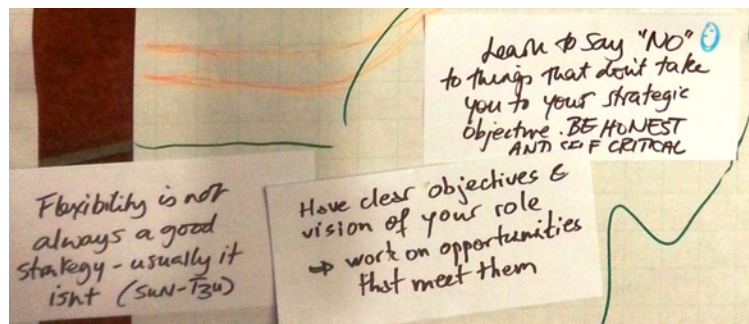 Learn to say "NO"
to things that don't take
you to your strategic
objective. BE HONEST
AND SELF CRITICAL
Flexibility is not
always a good
strategy - usually it
isnt (SUN-TZU)
Have clear objectives &
vision of your role
→ work on opportunities
that meet them